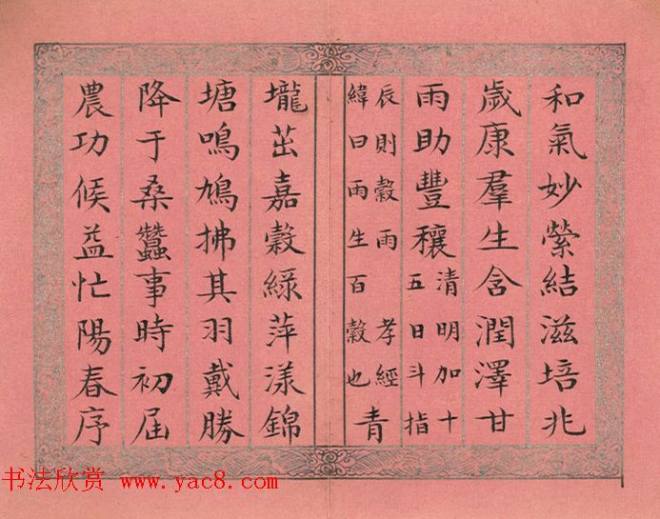 和氣妙縈結滋培兆
歲康羣生含潤澤甘
雨助豐穰清明加十
五日斗指
辰則穀雨孝經
緯曰雨生百穀也青
壠茁嘉穀綠萍漾錦
塘鳴鳩拂其羽戴勝
降于桑蠶事時初届
農功候益忙陽春序
书法欣赏 www.yac8.com